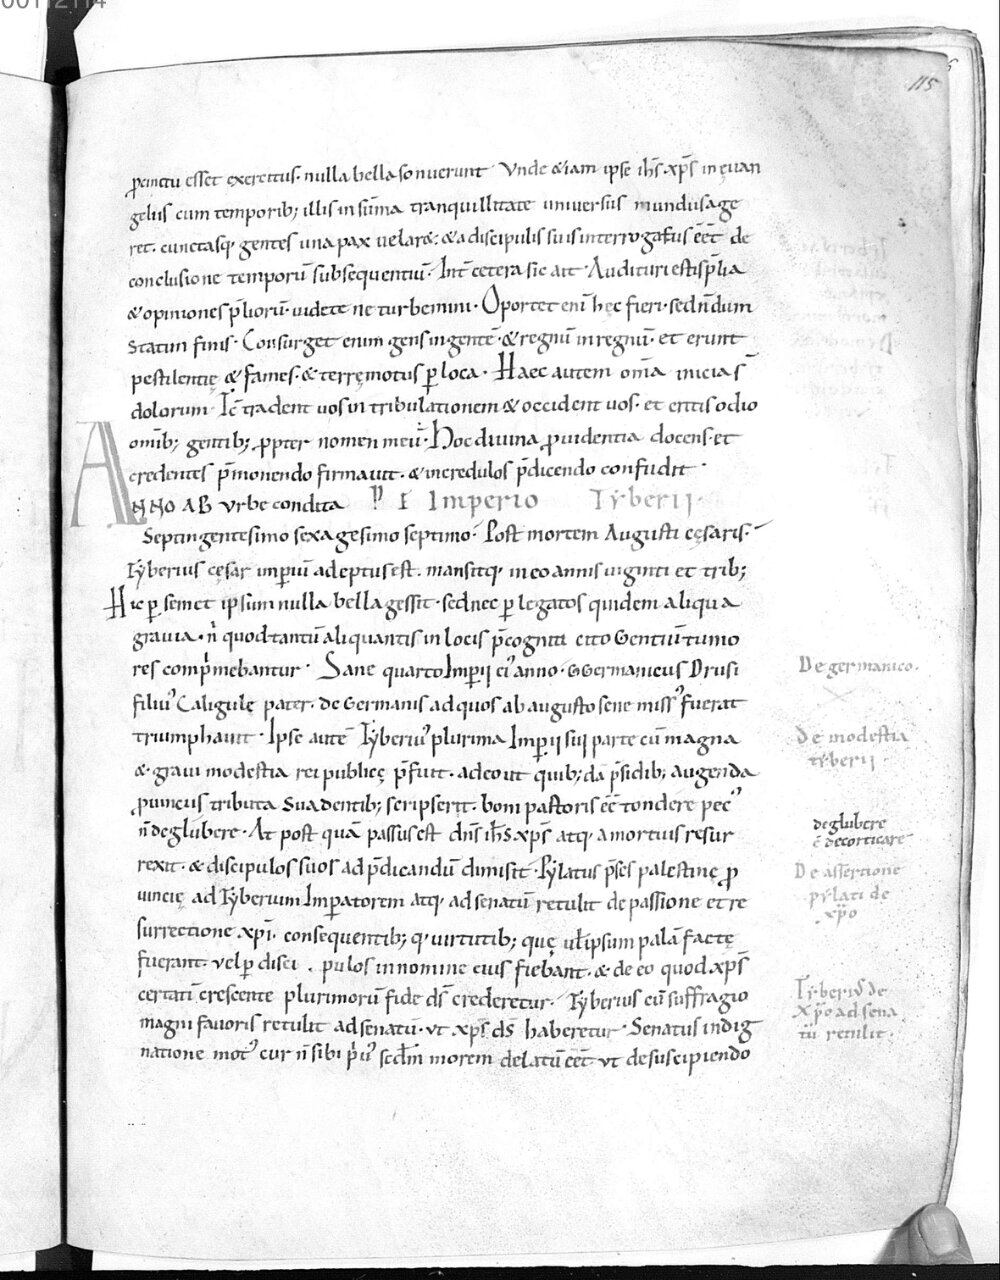 00112114
115
p̱cinctu esset exercitus· nulla bella sonuerunt Vnde &iam ipse ihs̄ xp̄s in ęuan
geliis cum temporib; illis in sūma tranquillitate universus mundus age
ret· cunctasq· gentes una pax velar&· & a discipulis suis interrogatus eēt de
conclusione temporū subsequentiū· Int̄ cetera sic ait· Audituri estis p̄lia
& opiniones p̄liorū· uidete ne turbemini· Oportet eni hęc fieri· sed ñdum
statim finis· Consurget enim gens in gentē· & regnū in regnū· et erunt
pestilentię & fames· & terrę motus p̱ loca· Haec autem om̄a inicia s̄
dolorum· Tc̄ tradent uos in tribulationem & occident uos· et eritis odio
omīb; gentib; p̱pter nomen meū· Hoc diuina p̱uidentia docens· et
credentes p̄monendo firmauit· & incredulos p̄dicendo confudit·
ANNO AB vrbe condita I Imperio Tẏberii·
Septingentesimo sexagesimo septimo· Post mortem Augusti cęsaris·
Tẏberius cęsar imperiū adeptus est· mansitq· in eo annis uiginti et trib;
Hic p̱ semet ipsum nulla bella gessit· sed nec p̱ legatos quidem aliqua
grauia· n̄ quod tantū aliquantis in locis p̄cogniti cito Gentiū tumo
res comp̍mebantur· Sane quarto Imp̱ii ei᾽ anno· GGermanicus Drusi
filiu᾽ Caligulę pater· de Germanis ad quos ab augusto sene miss᾽ fuerat
triumphauit· Ipse autē Tẏberiu᾽ plurima Imp̱ii sui parte cū magna
& graui modestia rei publicę p̄fuit· adeo ut quib;dā p̄sidib; augenda
p̱uinciis tributa Suadentib; scripserit· boni pastoris eēt tondere pec᾽
n̄ deglubere· At post quā passus est dn̄s ihs̄ xp̄s atq· a mortuis resur
rexit· & discipulos suos ad p̄dicandū dimisit· Pẏlatus p̄ses palestinę p̱
uincię ad Tẏberium Imp̱atorem atq· ad senatū retulit de passione et re
surrectione xp̄i· consequentib;q· uirtutib; quę ul̄ ipsum palā factę
fuerant· vel p̱ disci pulos in nomine eius fiebant· & de eo quod xp̄s
certatī crescente plurimorū fide ds̄ crederetur· Tẏberius cū suffragio
magni fauoris retulit ad senatū· vt xp̄s ds̄ haberetur· Senatus indig
natione mot᾽ cur n̄ sibi p̍u᾽ scd̄m morem delatū eēt vt de suscipiendo
De germanico·
De modestia
tẏberii
deglubere
ē decorticare
De assertione
pẏlati de
xp̄o
Tẏberiu᾽ de
xp̄o ad sena
tū retulit·